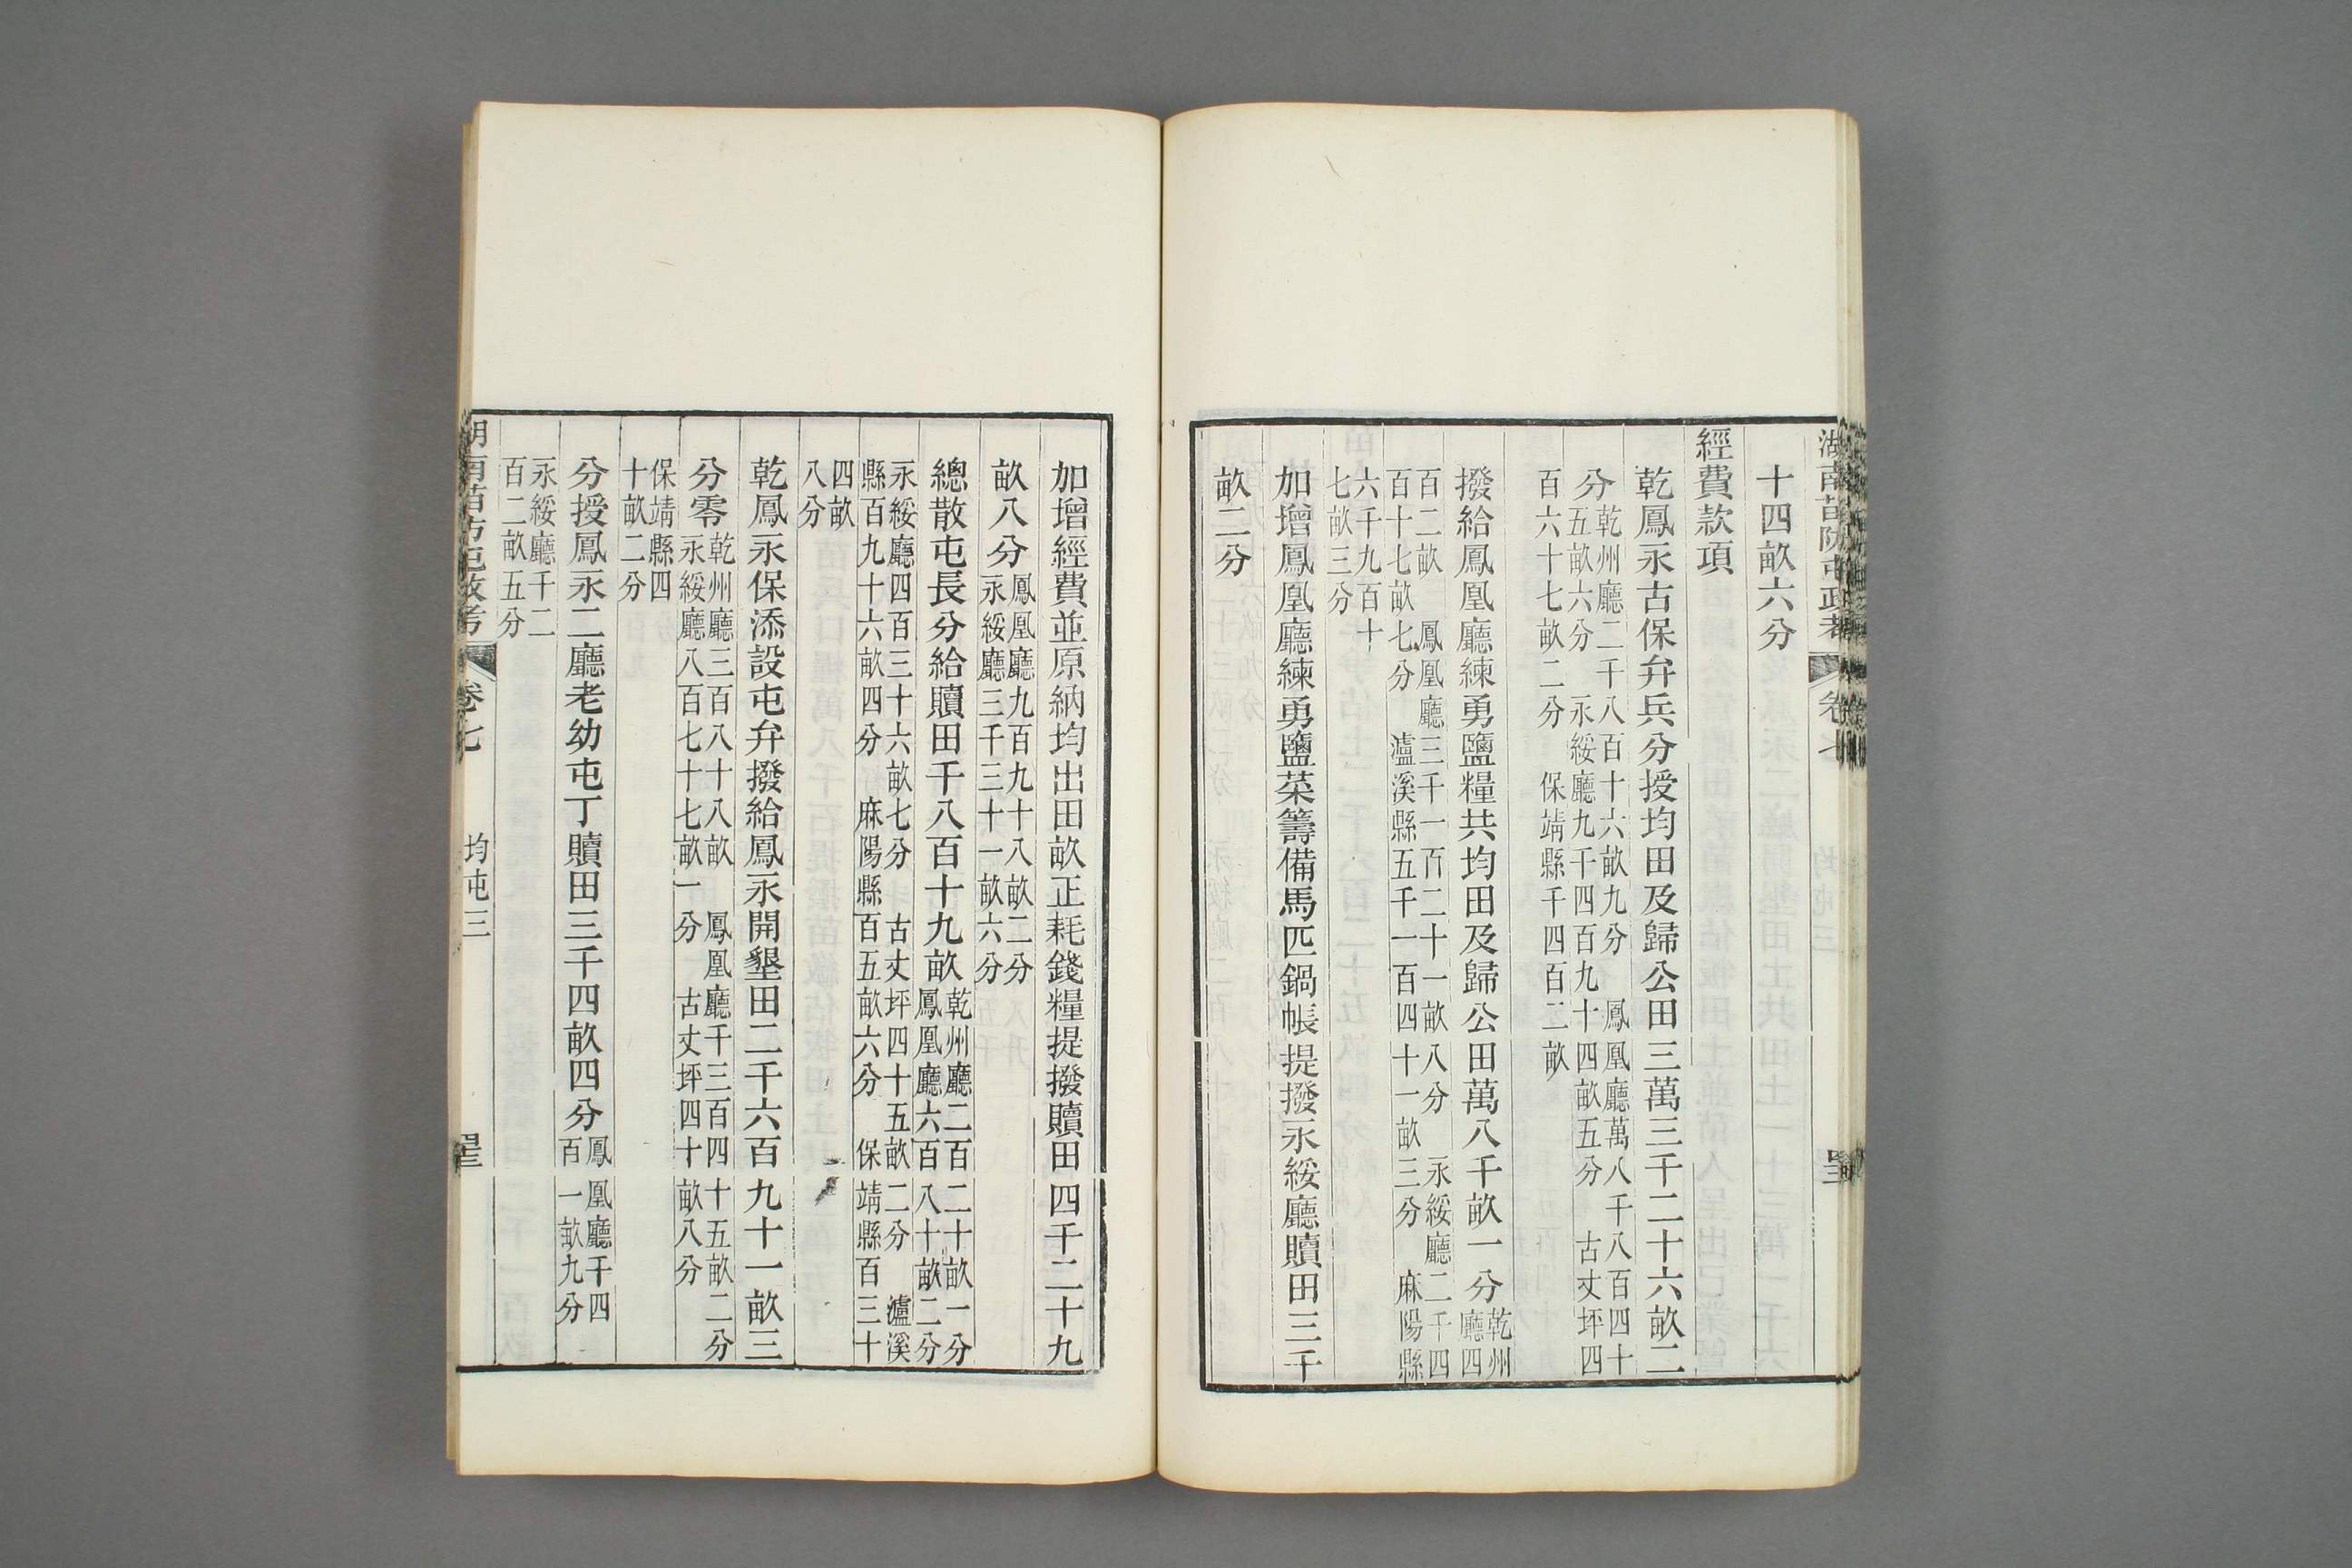 湖南苗防屯政考 卷七 均屯三
十四畝六分
經費款項
乾鳳永古保弁兵分授均田及歸公田三萬三千二十六畝二
分乾州廳二千八百十六畝九分 鳳凰廳萬八千八百四十
五畝六分 永綏廳九千四百九十四畝五分 古丈坪四
百六十七畝二分 保靖縣千四百三畝
撥給鳳凰廳練勇鹽糧共均田及歸公田萬八千畝一分乾州
廳四
百二畝 鳳凰廳三千一百二十一畝八分 永綏廳二千四
百十七畝七分 瀘溪縣五千一百四十一畝三分 麻陽縣
六千九百十
七畝三分
加增鳳凰廳練勇鹽菜籌備馬匹鍋帳提撥永綏廳贖田三千
畝二分
加增經費並原納均出田畝正耗錢糧提撥贖田四千二十九
畝八分鳳凰廳九百九十八畝二分
永綏廳三千三十一畝六分
總散屯長分給贖田千八百十九畝乾州廳二百二十畝一分
鳳凰廳六百八十畝二分
永綏廳四百三十六畝七分 古丈坪四十五畝二分 瀘溪
縣百九十六畝四分 麻陽縣百五畝六分 保靖縣百三十
四畝
八分
乾鳳永保添設屯弁撥給鳳永開墾田二千六百九十一畝三
分零乾州廳三百八十八畝 鳳凰廳千三百四十五畝二分
永綏廳八百七十七畝一分 古丈坪四十畝八分
保靖縣四
十畝二分
分授鳳永二廳老幼屯丁贖田三千四畝四分鳳凰廳千四
百一畝九分
永綏廳千二
百二畝五分
湖南苗防屯政考 卷七 均屯三